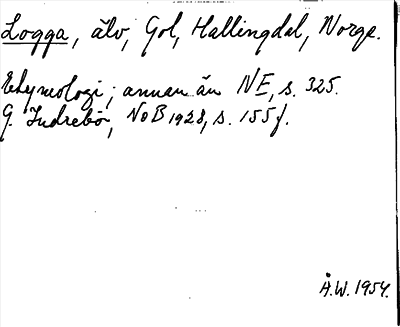 Logga, älv, Gol, Hallingdal, Norge.
Etymologi; annan än NE, s. 325.
G. Indrebö, NoB 1928, s. 155 f.
Å.W. 1954.